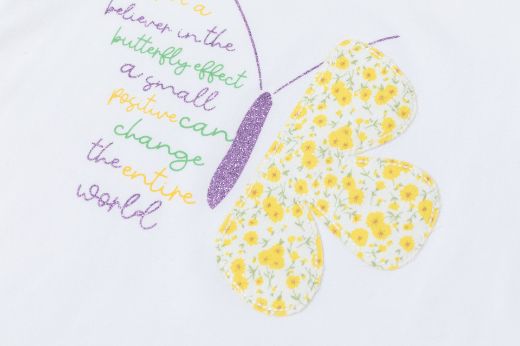 a
believer in the
butterfly effect
a small
positive can
change
the entire
world